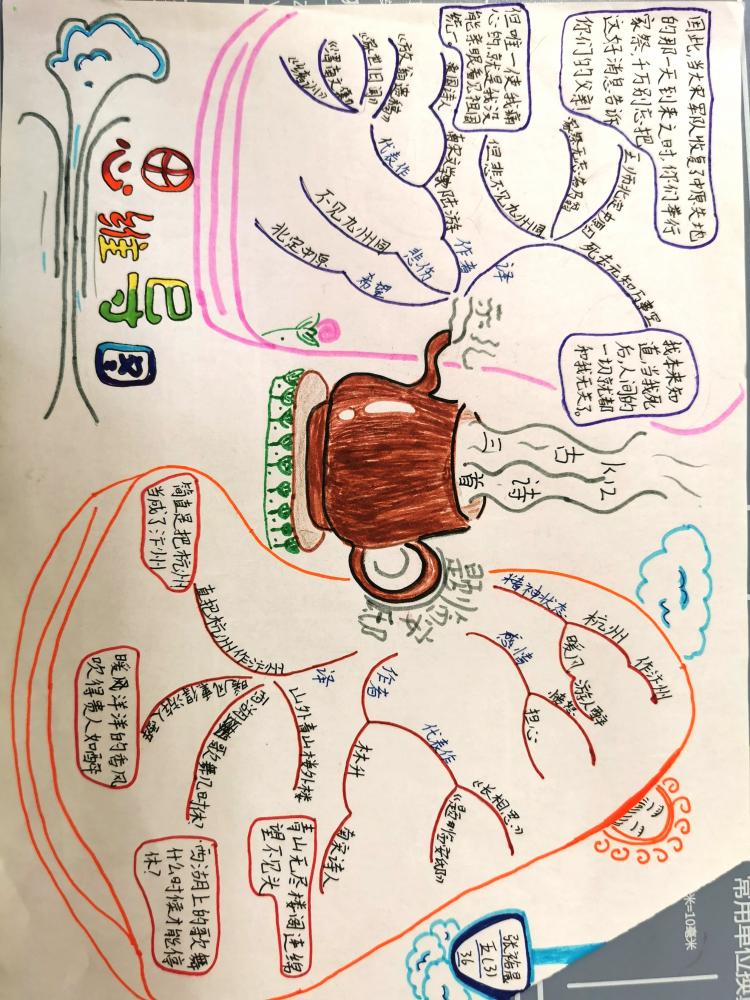 思维导图
古诗三首
示儿
译
死去元知万事空
我本来知
道,当我死
后,人间的
一切就都
和我无关了。
但悲不见九州同
但唯一使我痛
心的,就是我没
能亲眼看见祖国
统一
王师北定中原日
家祭无忘告乃翁
因此,当大宋军队收复了中原失地
的那一天到来之时,你们举行
家祭,千万别忘把
这好消息告诉
你们的父亲
作者
陆游
南宋文学家
爱国诗人
代表作
悲伤
不见九州同
希望
北定中原
题临安邸
精神状态
杭州
作汴州
暖风
游人醉
感情
愤怒
担心
作者
代表作
《长相思》
《题临安邸》
林升
南宋诗人
译
山外青山楼外楼
青山无尽楼阁连绵
望不见头
西湖歌舞几时休?
西湖上的歌舞
什么时候才能停
休?
暖风熏得游人醉
暖风洋洋的香风
吹得贵人如醉
直把杭州作汴州
简直是把杭州
当成了汴州
张裕晨
五(3)
36
常用单位换
米=10毫米